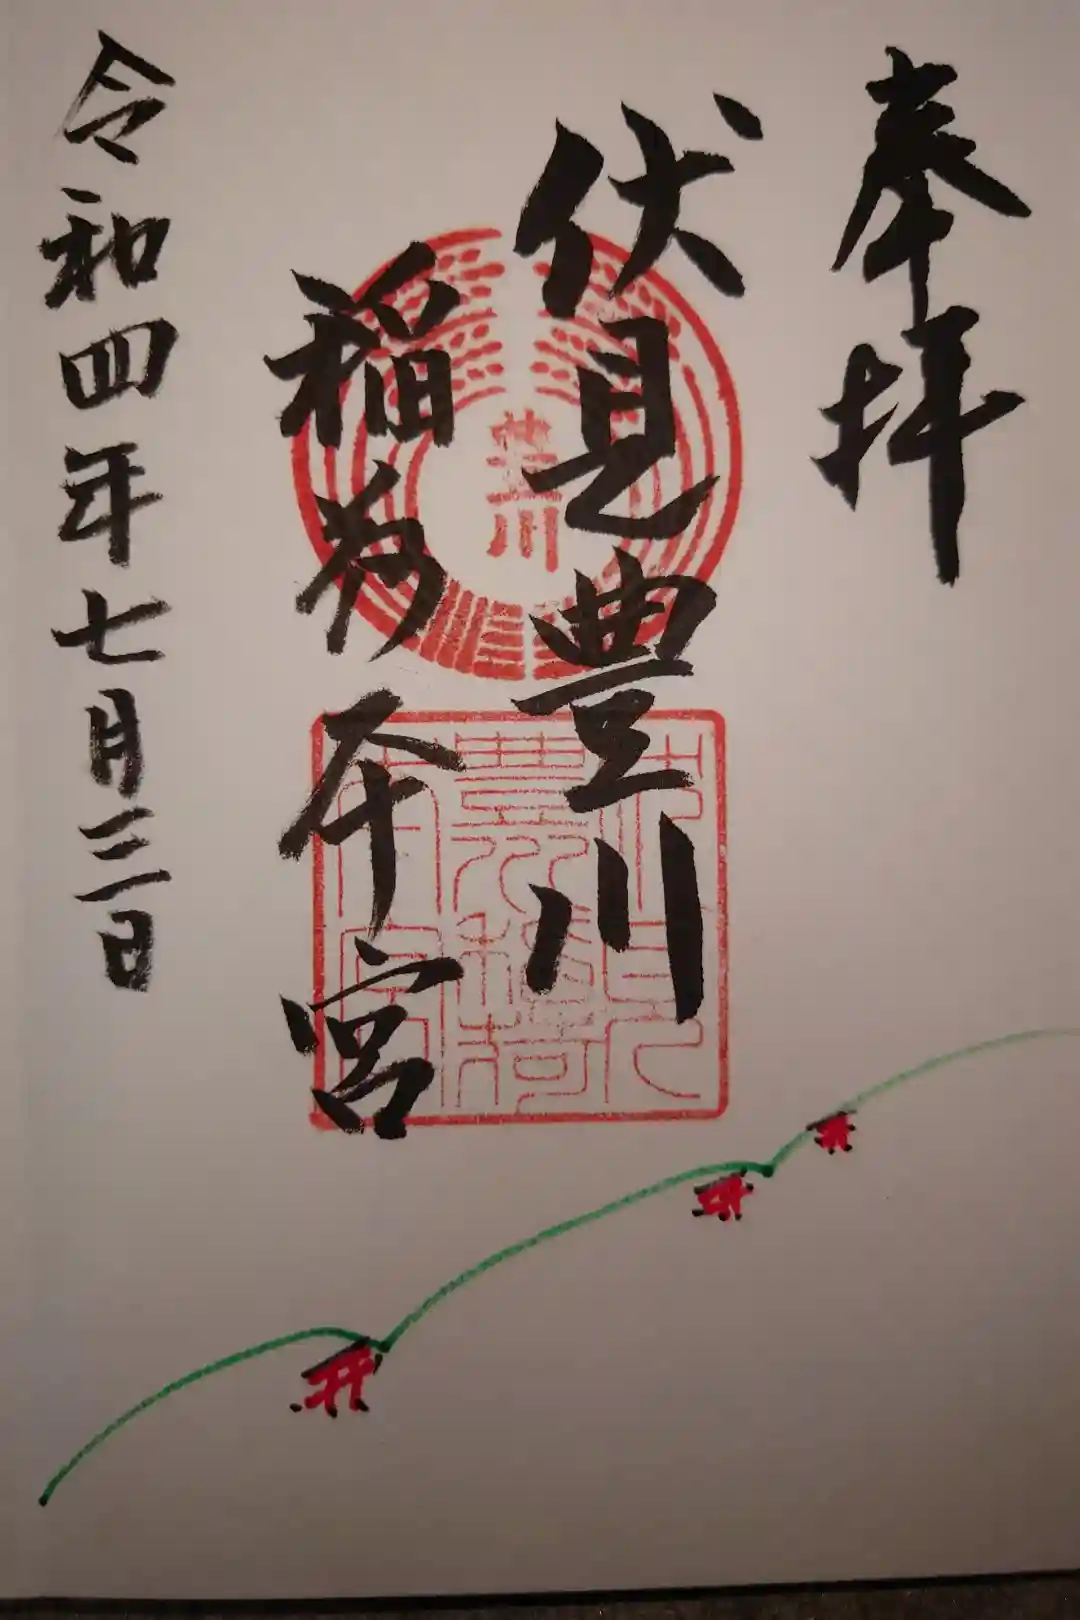 奉拝
伏見豊川
稲荷本宮
令和四年七月三日
豊川
伏見
豊川稲荷
本宮